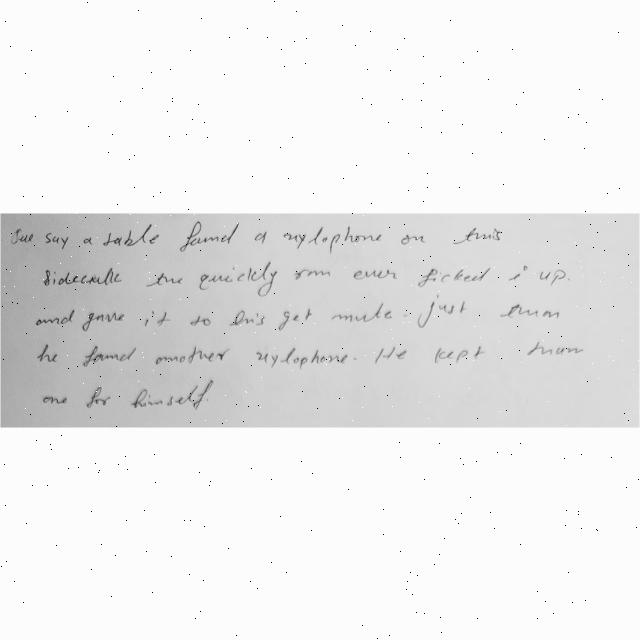 say a sable found a xylophone on this
sidewalk the quickly ran over picked i up.
and gave it to his get mule. just than
he found another xylophone. He kept than
one for himself.